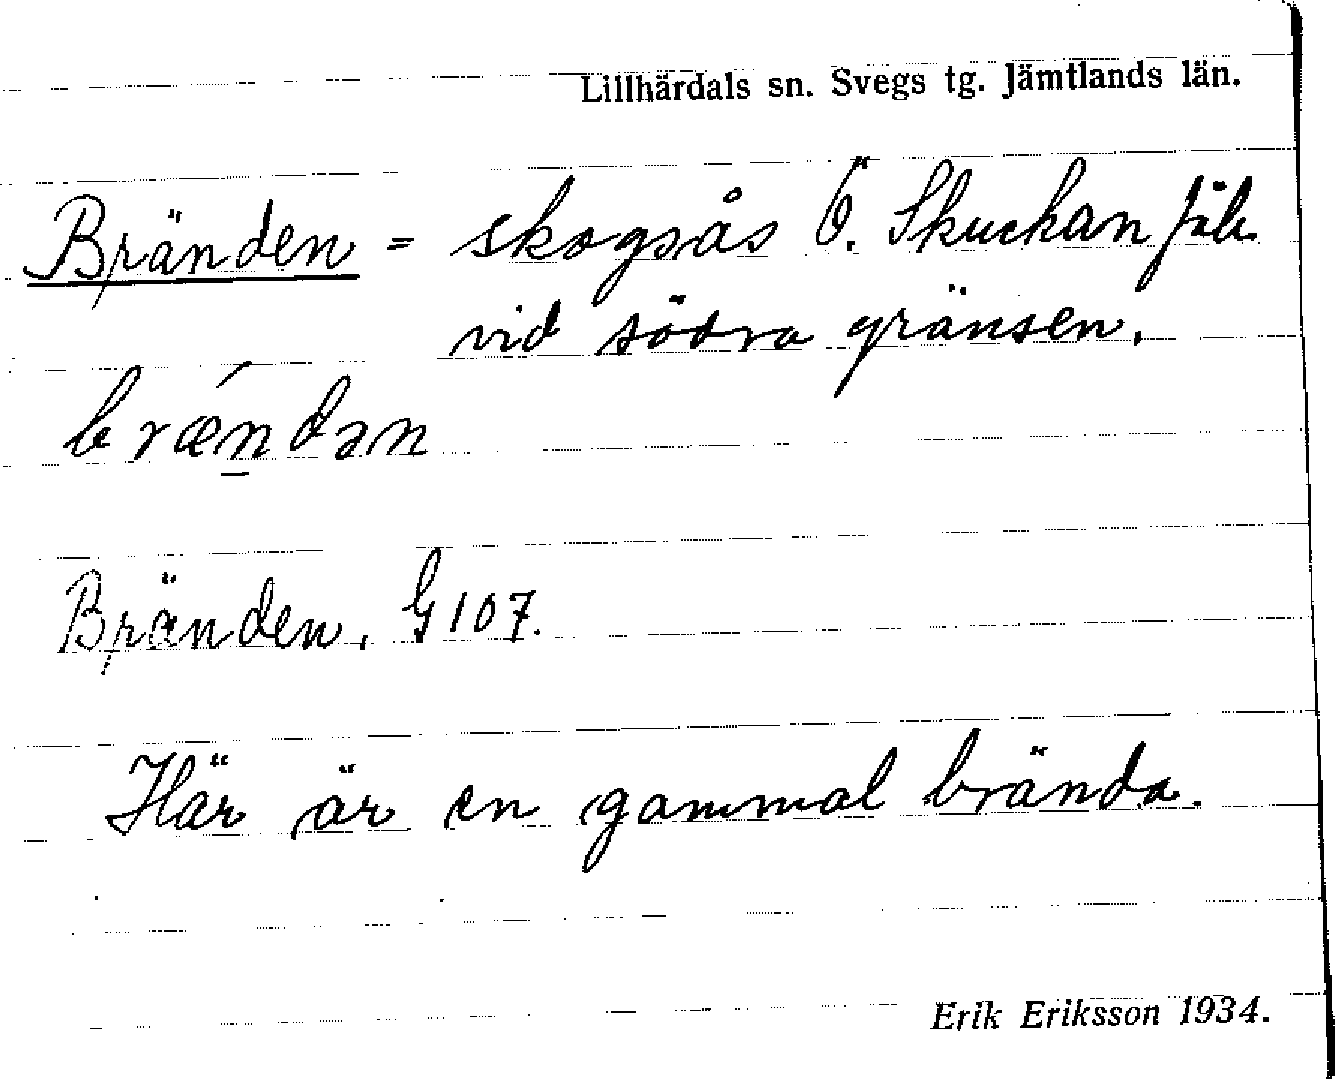 Lillhärdals sn. Svegs tg. Jämtlands län.
Bränden = skogsås Ö. Skuckan
vid södra gränsen.
brǽndən
Bränden. G 107.
Här är en gammal brända.
Erik Eriksson 1934.